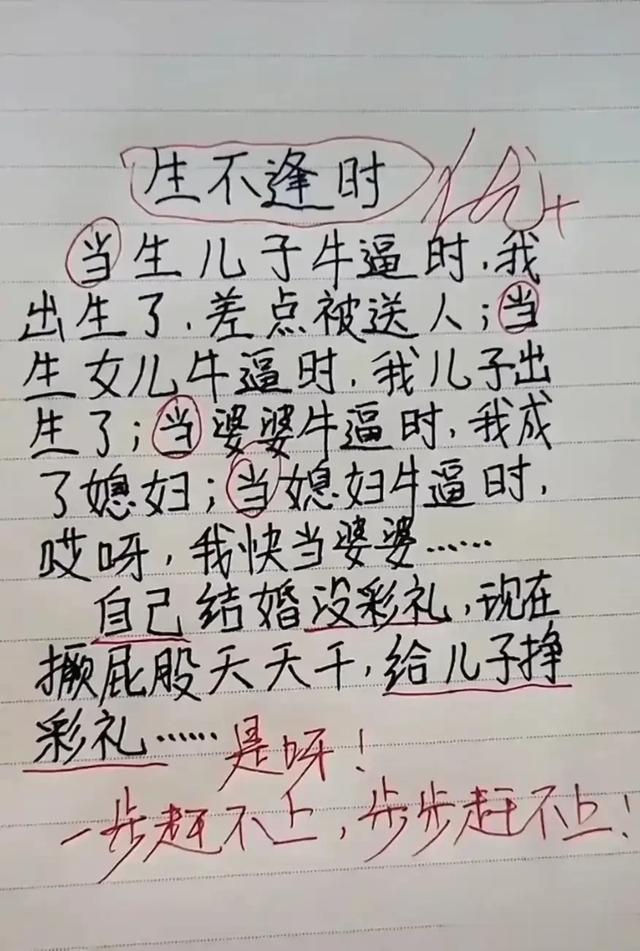 生不逢时 优+
当生儿子牛逼时,我
出生了,差点被送人;当
生女儿牛逼时,我儿子出
生了;当婆婆牛逼时,我成
了媳妇;当媳妇牛逼时,
哎呀,我快当婆婆……
自己结婚没彩礼,现在
撅屁股天天干,给儿子挣
彩礼…… 是呀!
一步赶不上,步步赶不上!